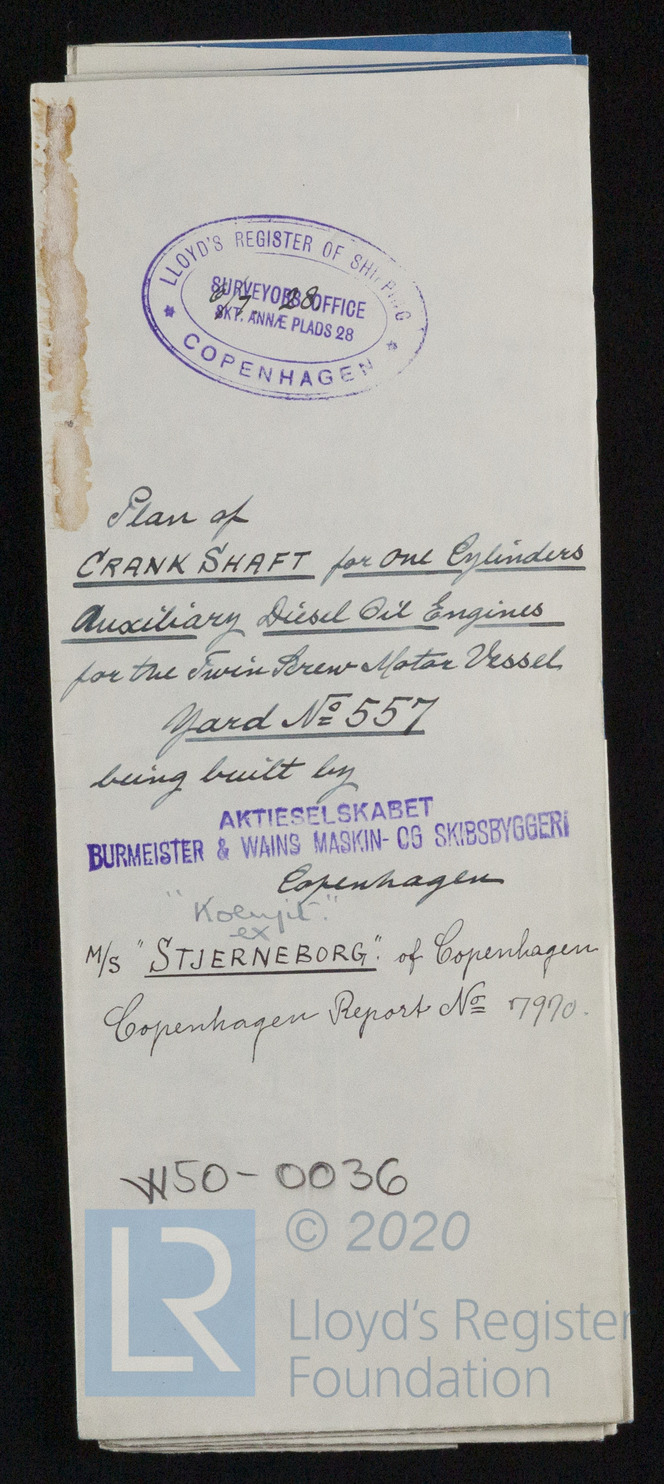 LLOYD'S REGISTER OF SHIPPING
SURVEYORS OFFICE
28
SKT. ANNÆ PLADS 28
COPENHAGEN
Plan of
CRANK SHAFT for one Cylinders
Auxiliary Diesel Oil Engines
for the Twin Screw Motor Vessel
Yard No 557
being built by
AKTIESELSKABET
BURMEISTER & WAINS MASKIN- OG SKIBSBYGGERI
Copenhagen
ex
M/S "STJERNEBORG". of Copenhagen
Copenhagen Report No 7970.
W50-0036
LR
© 2020
Lloyd's Register
Foundation